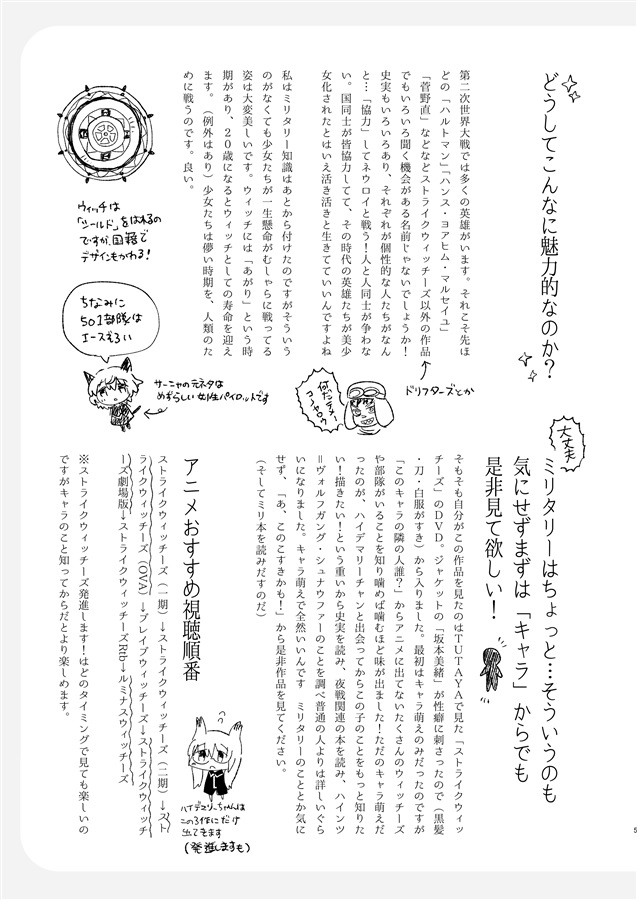 どうしてこんなに魅力的なのか？
第二次世界大戦では多くの英雄がいます。それこそ先ほ
どの「ハルトマン」「ハンス・ヨアヒム・マルセイユ」
「菅野直」などなどストライクウィッチーズ以外の作品
でもいろいろ聞く機会がある名前じゃないでしょうか！
史実もいろいろあり、それぞれが個性的な人たちがなん
と…「協力」してネウロイと戦う！人と人同士が争わな
い。国同士が皆協力してて、その時代の英雄たちが美少
女化されたとはいえ活き活きと生きてていいんですよね
私はミリタリー知識はあとから付けたのですがそういう
のがなくても少女たちが一生懸命がむしゃらに戦ってる
姿は大変美しいです。ウィッチには「あがり」という時
期があり、２０歳になるとウィッチとしての寿命を迎え
ます。（例外はあり）少女たちは儚い時期を、人類のた
めに戦うのです。良い。
ドリフターズとか
何だテメーコノヤロウ
ウィッチは
「シールド」をはれるの
ですが、国籍で
デザインもかわる！
ちなみに
501部隊は
エースぞろい
サーニャの元ネタは
めずらしい女性パイロットです
大丈夫
ミリタリーはちょっと…そういうのも
気にせずまずは「キャラ」からでも
是非見て欲しい！
そもそも自分がこの作品を見たのはＴＵＴＡＹＡで見た「ストライクウィッ
チーズ」のＤＶＤ。ジャケットの「坂本美緒」が性癖に刺さったので（黒髪
・刀・白服がすき）から入りました。最初はキャラ萌えのみだったのですが
「このキャラの隣の人誰？」からアニメに出てないたくさんのウィッチーズ
や部隊がいることを知り噛めば噛むほど味が出ました！ただのキャラ萌えだ
ったのが、ハイデマリーチャンと出会ってからこの子のことをもっと知りた
い！描きたい！という重いから史実を読み、夜戦関連の本を読み、ハインツ
＝ヴォルフガング・シュナウファーのことを調べ普通の人よりは詳しいぐら
いになりました。キャラ萌えで全然いいんです　ミリタリーのこととか気に
せず、「あ、このこすきかも！」から是非作品を見てください。
（そしてミリ本を読みだすのだ）
アニメおすすめ視聴順番
ストライクウィッチーズ（一期）→ストライクウィッチーズ（二期）→スト
ライクウィッチーズ（OVA）→ブレイブウィッチーズ→ストライクウィッチ
ーズ劇場版→ストライクウィッチーズRtb→ルミナスウィッチーズ
ハイデマリーちゃんは
この3作にだけ
出てきます
（発進しますも）
※ストライクウィッチーズ発進します！はどのタイミングで見ても楽しいの
ですがキャラのこと知ってからだとより楽しめます。
5